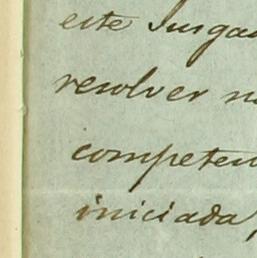 este Jusga
resolver n
competen
iniciada,